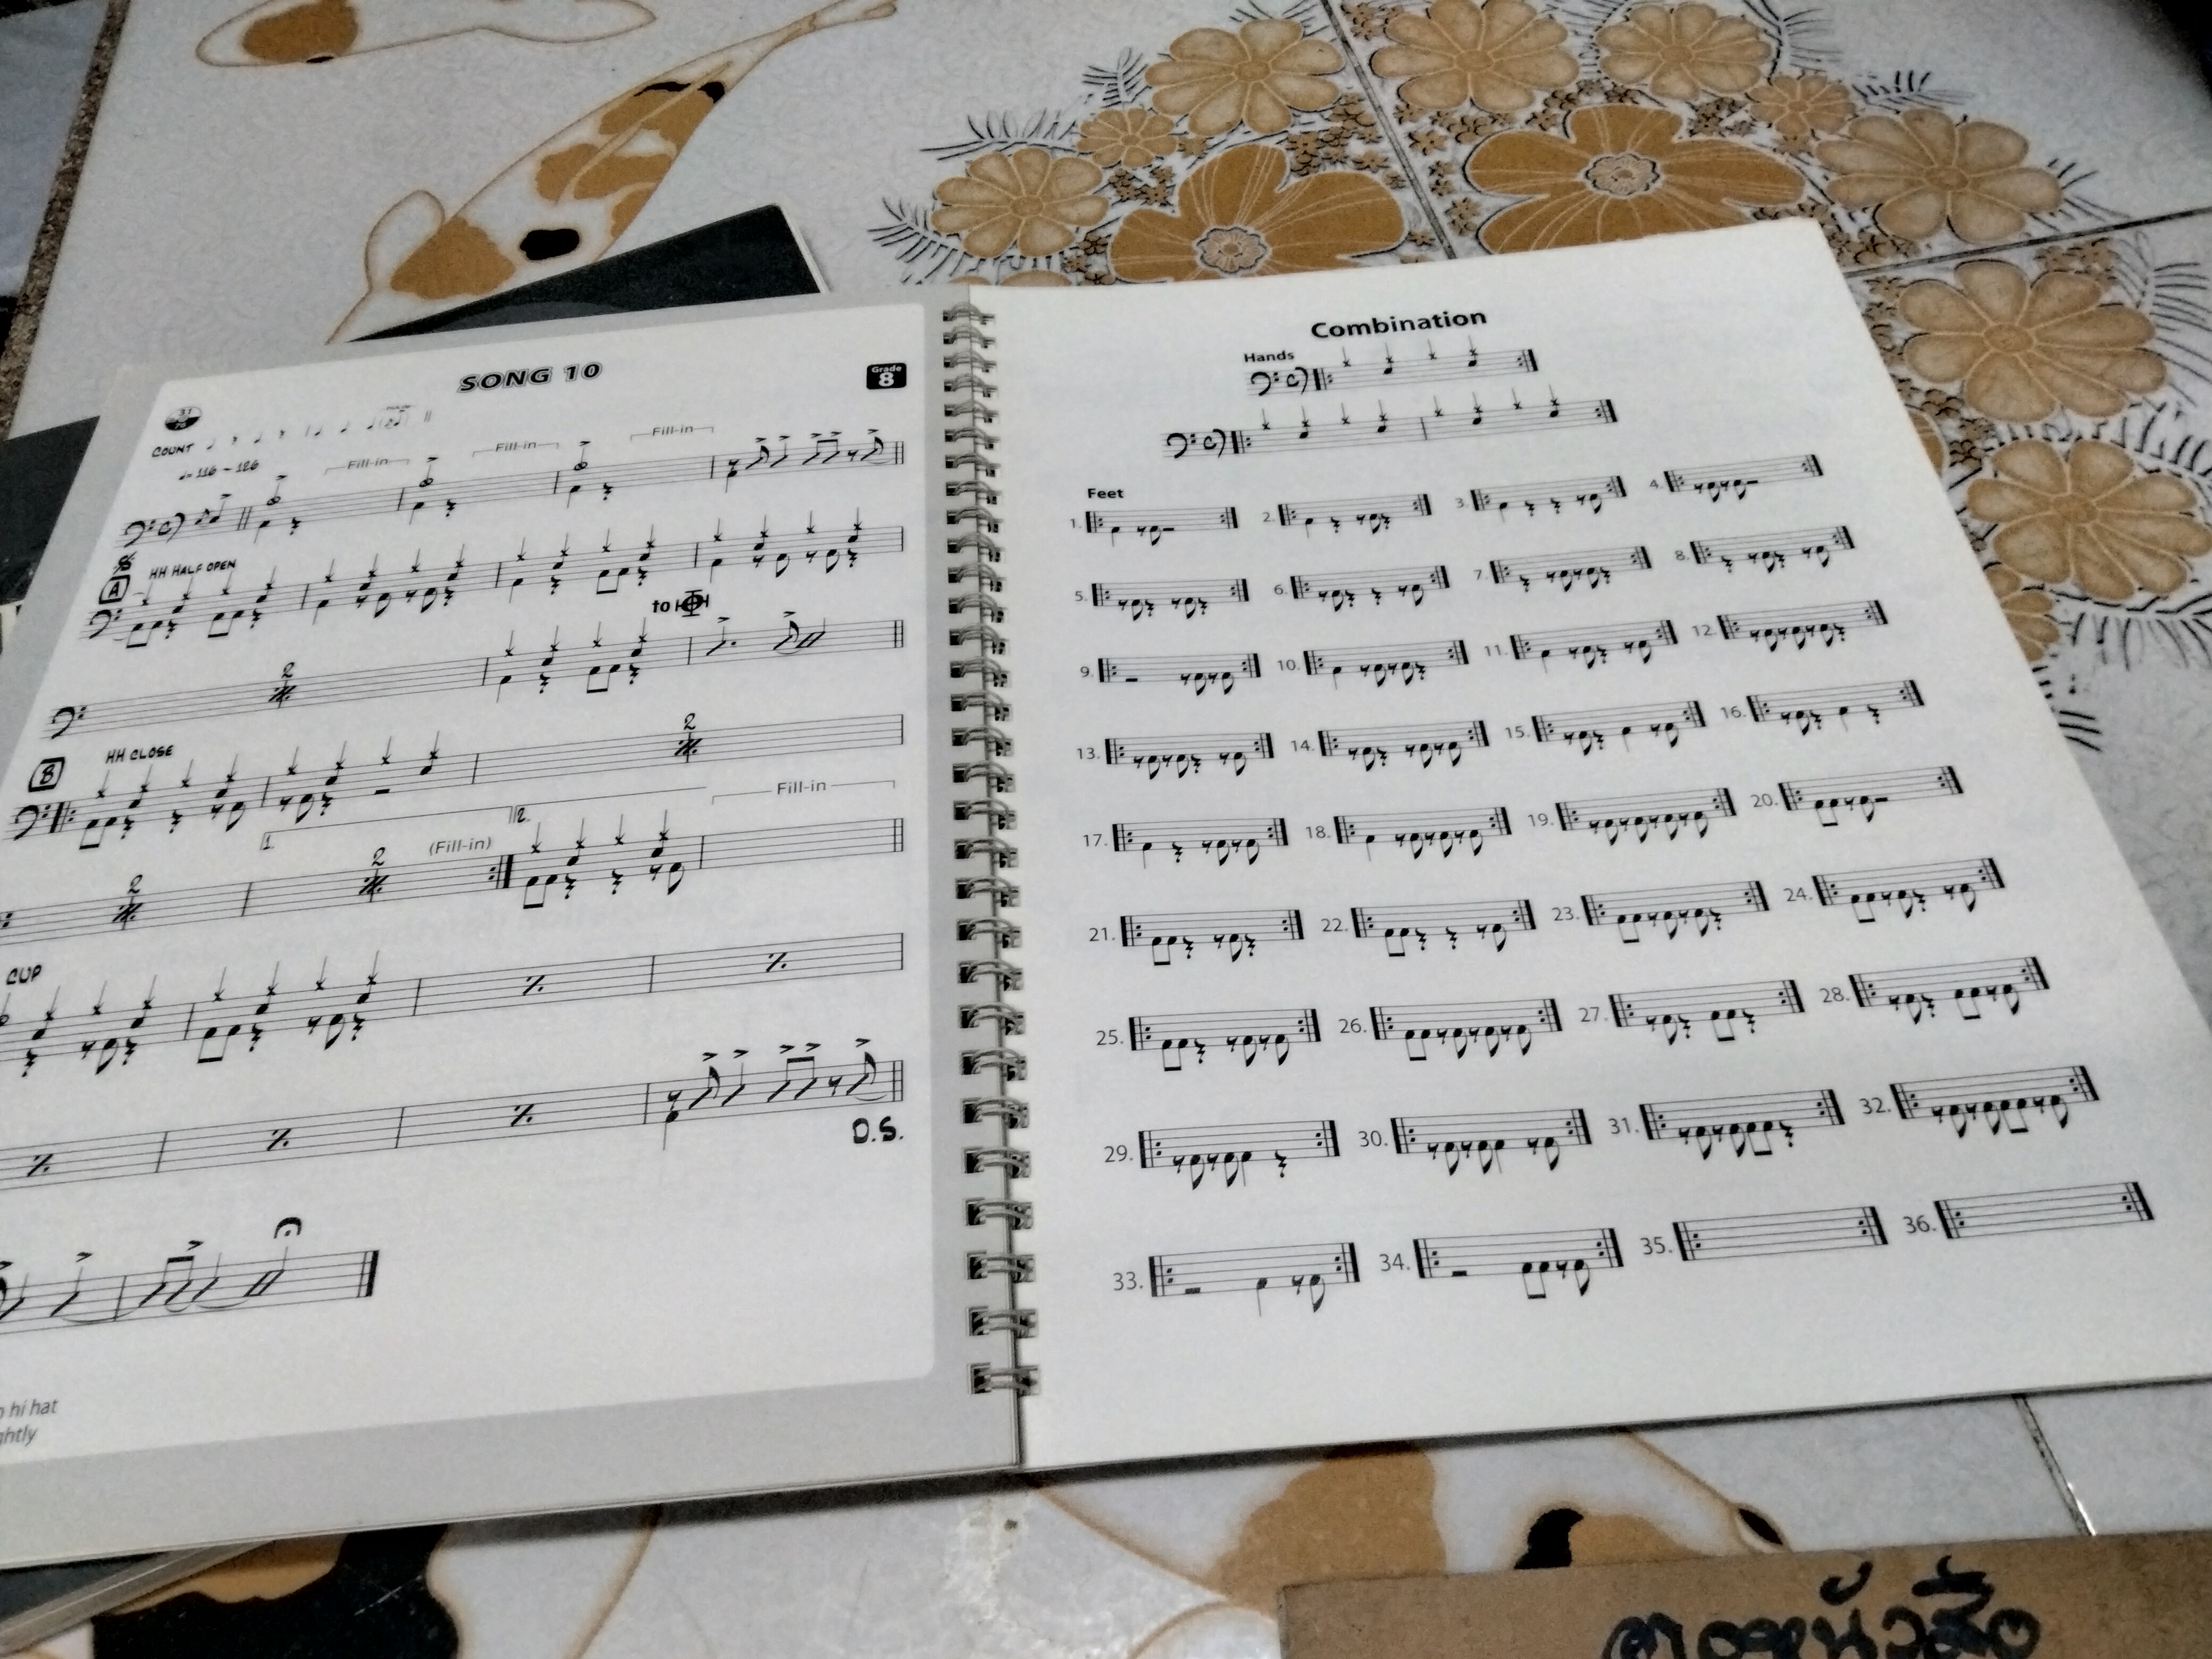 SONG 10
Grade
8
COUNT
♩= 116 - 126
Fill-in
Fill-in
Fill-in
A
HH HALF OPEN
to
2
B
HH CLOSE
2
1.
2.
Fill-in
2
2
(Fill-in)
CUP
D.S.
hi hat
ghtly
Combination
Hands
Feet
1.
2.
3.
4.
5.
6.
7.
8.
9.
10.
11.
12.
13.
14.
15.
16.
17.
18.
19.
20.
21.
22.
23.
24.
25.
26.
27.
28.
29.
30.
31.
32.
33.
34.
35.
36.